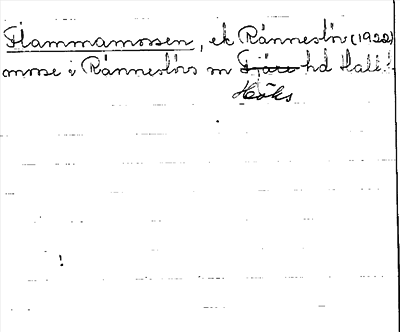 Flammamossen, ek Ränneslöv (1922)
mosse i Ränneslövs sn Fjäre hd Hall.
Höks
!